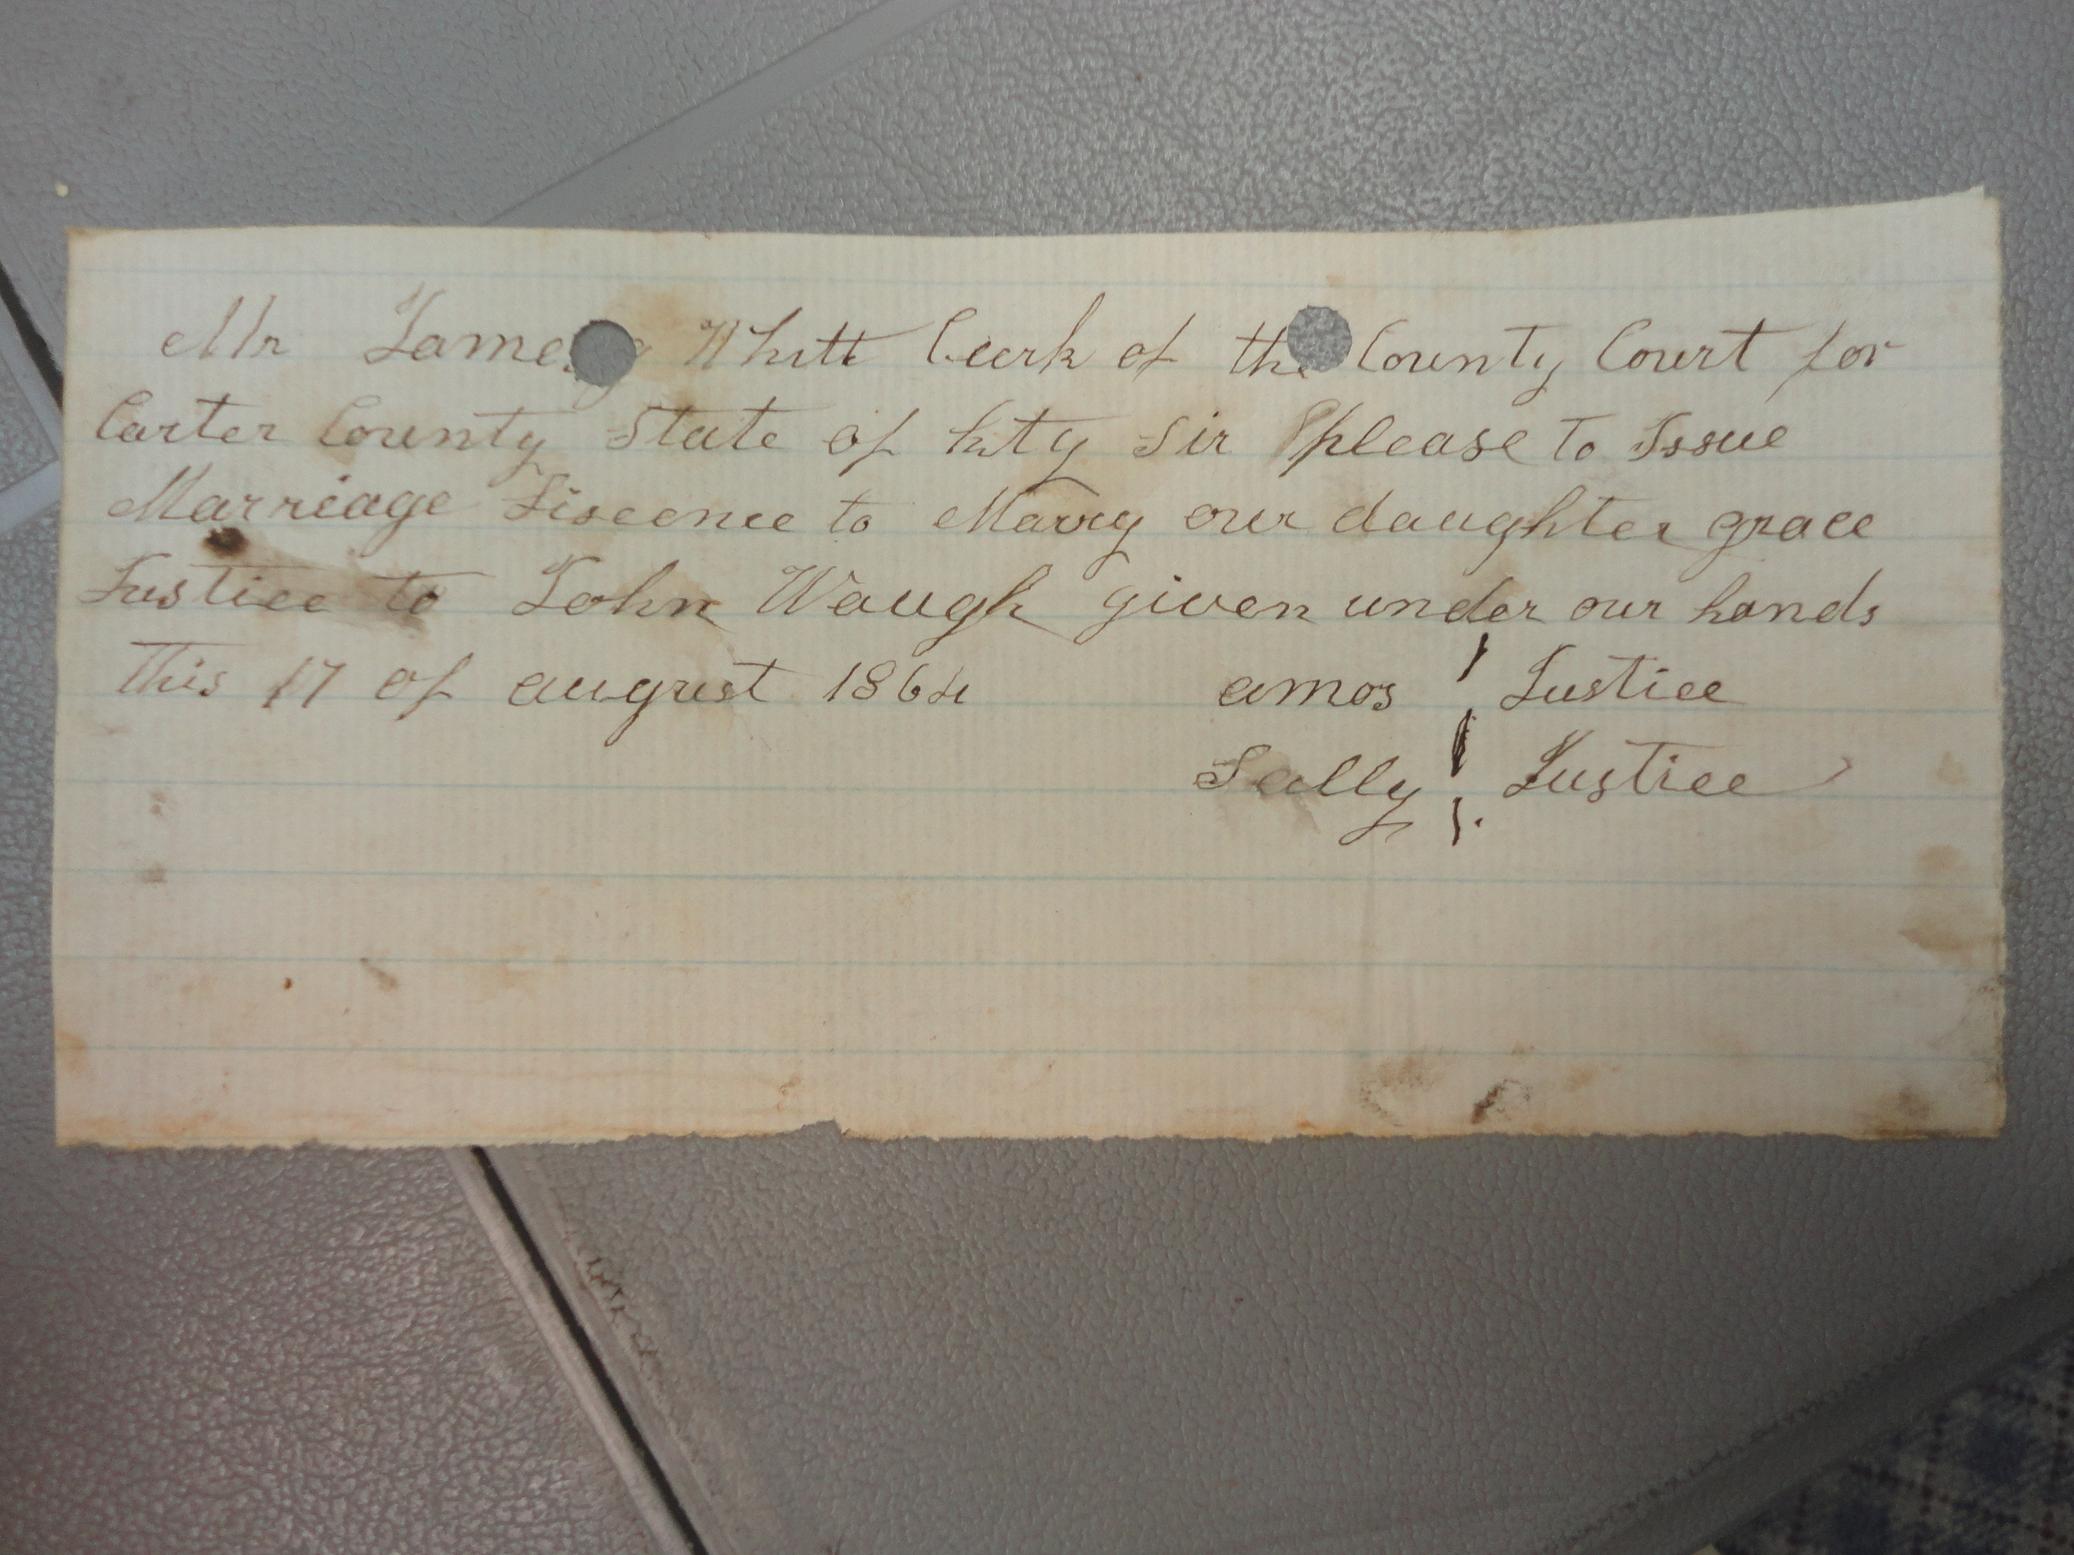 Mr James Whitt Clerk of the County Court for
Carter County State of Kty Sir please to Issue
Marriage Liscence to Marry our daughter grace
Justice to John Waugh given under our hands
this 17 of august 1864 amos Justice
Sally Justice